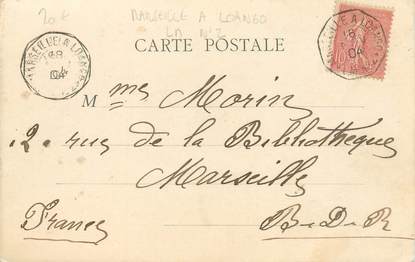 20€
MARSEILLE A LOANGO
LA N°2
CARTE POSTALE
MARSEILLE A LOANGO
8
04
MARSEILLE A LOANGO
8
04
10
Mme Morin
2. rue de la Bibliothèque
Marseille
France B-D-R